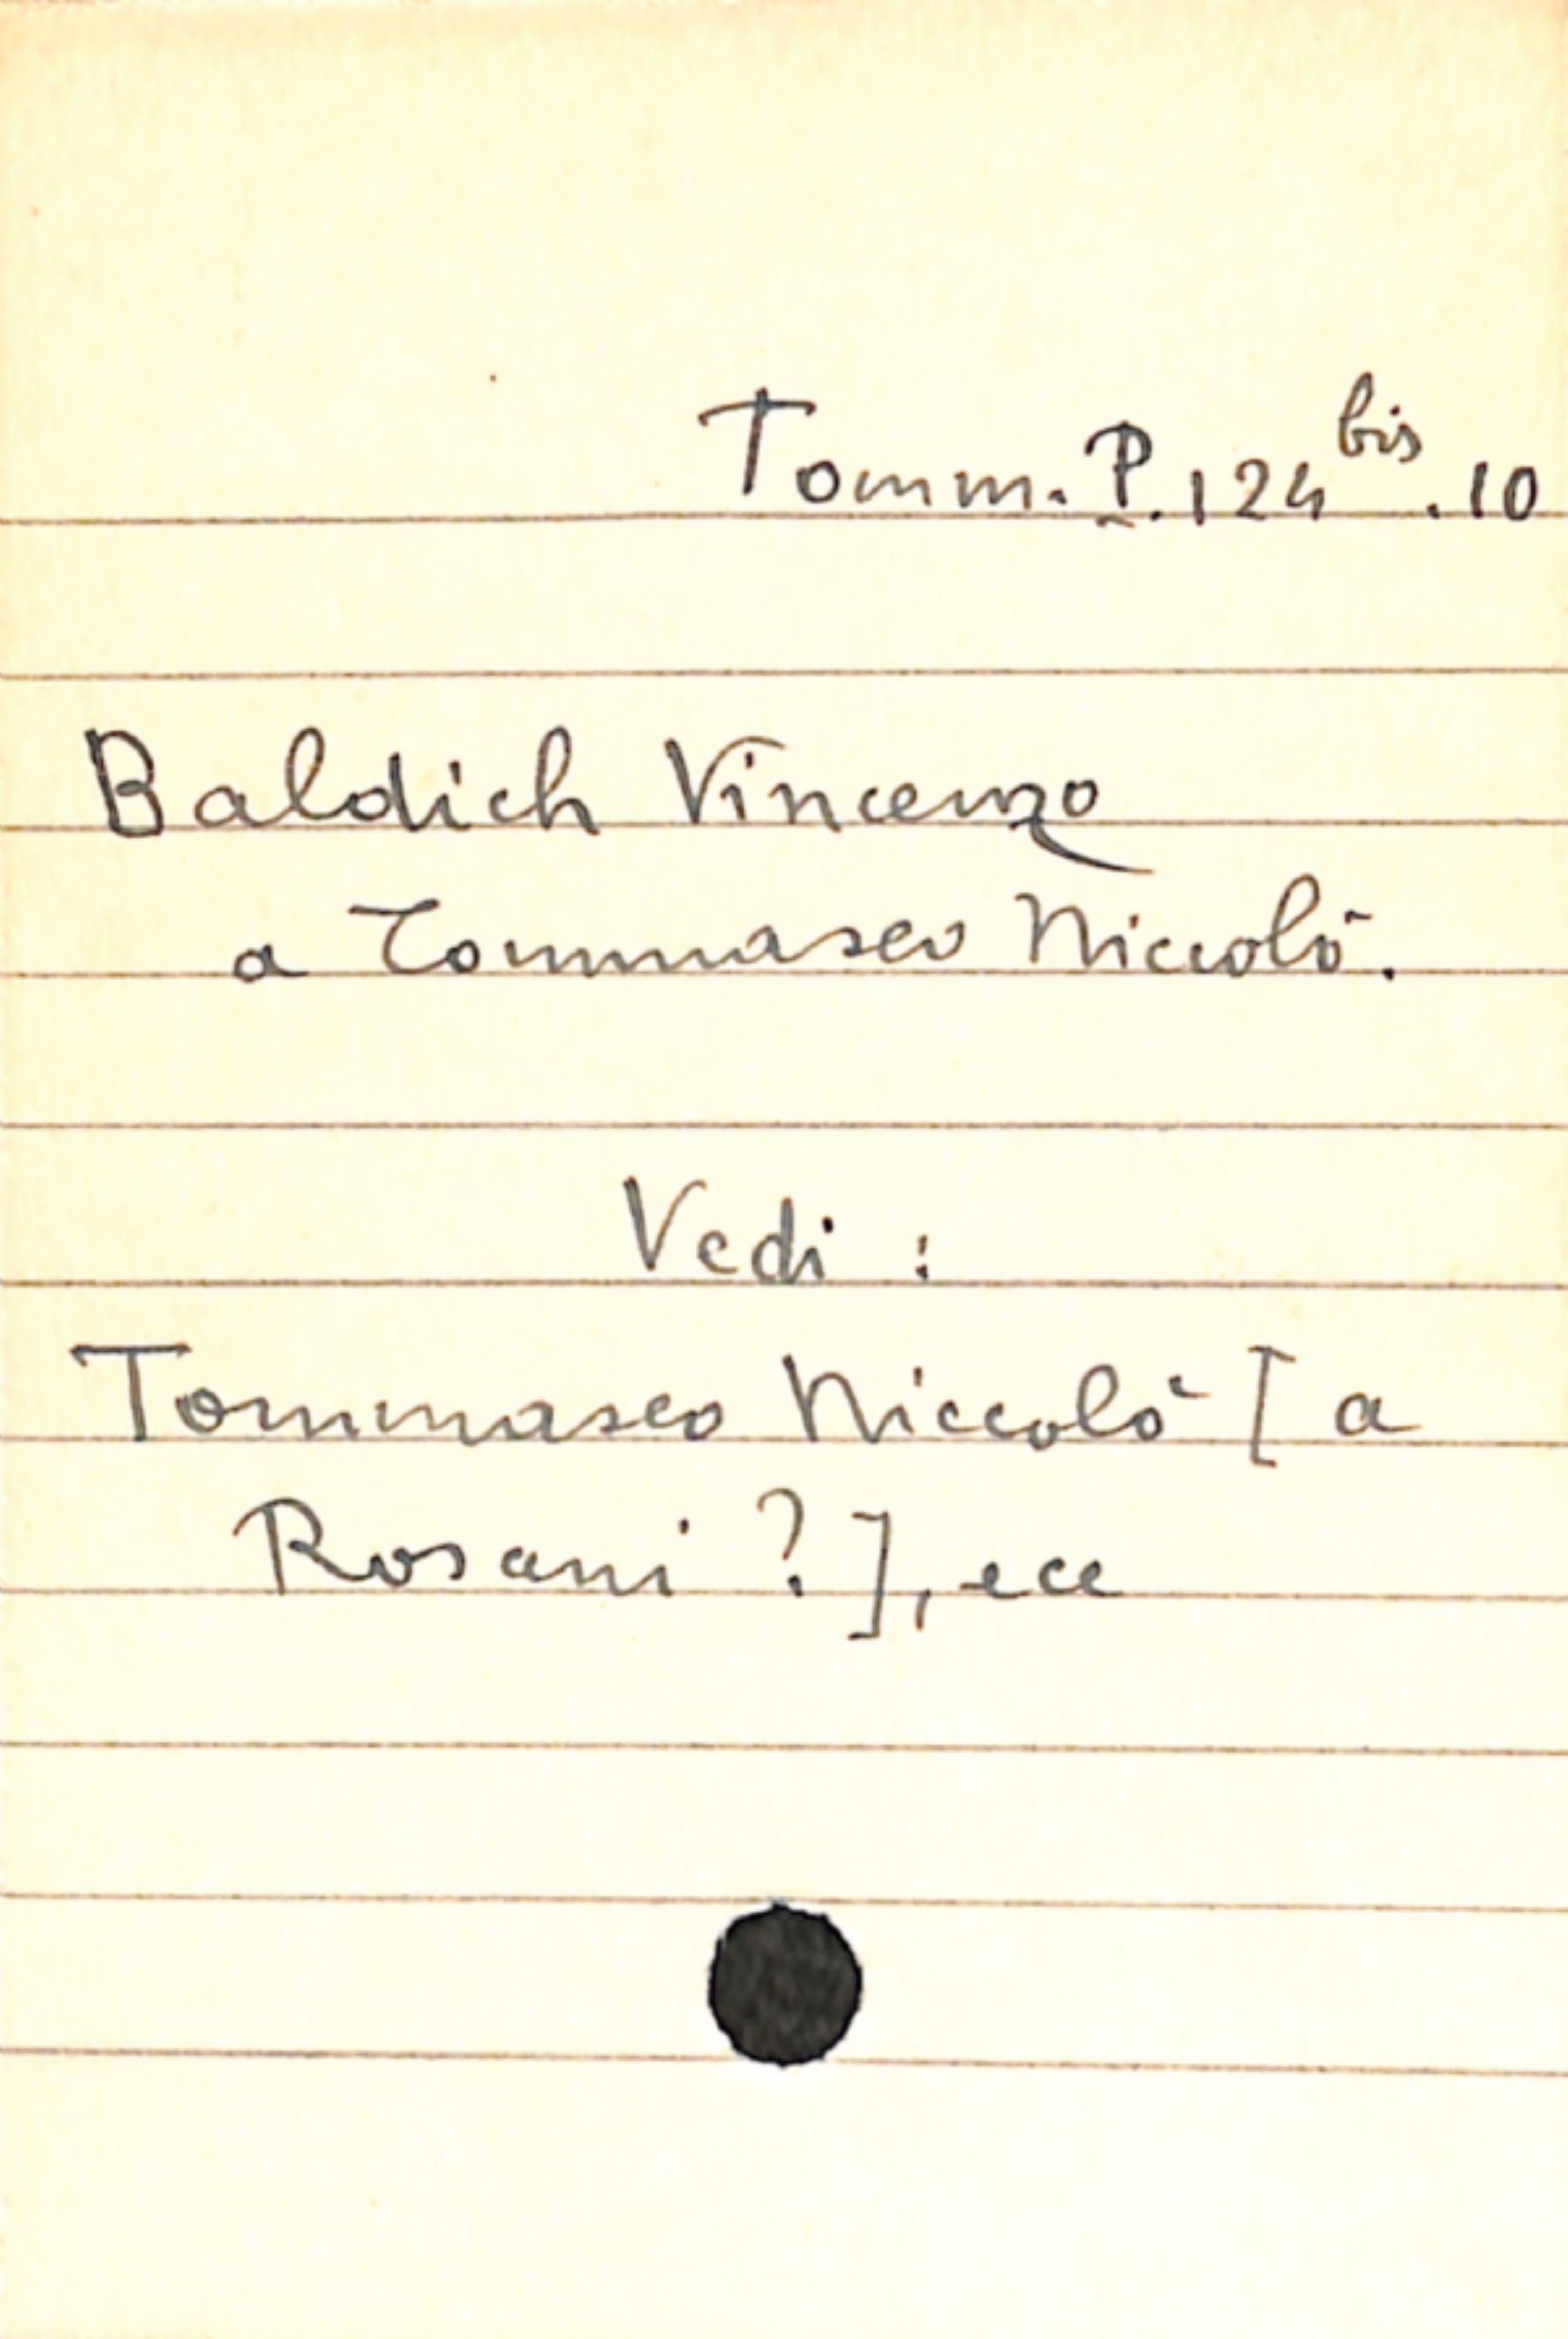 Tomm. P. 124 bis . 10
Baldich Vincenzo
a Tommaseo Niccolò.
Vedi :
Tommaseo Niccolò [ a
Rosani ? ], ecc